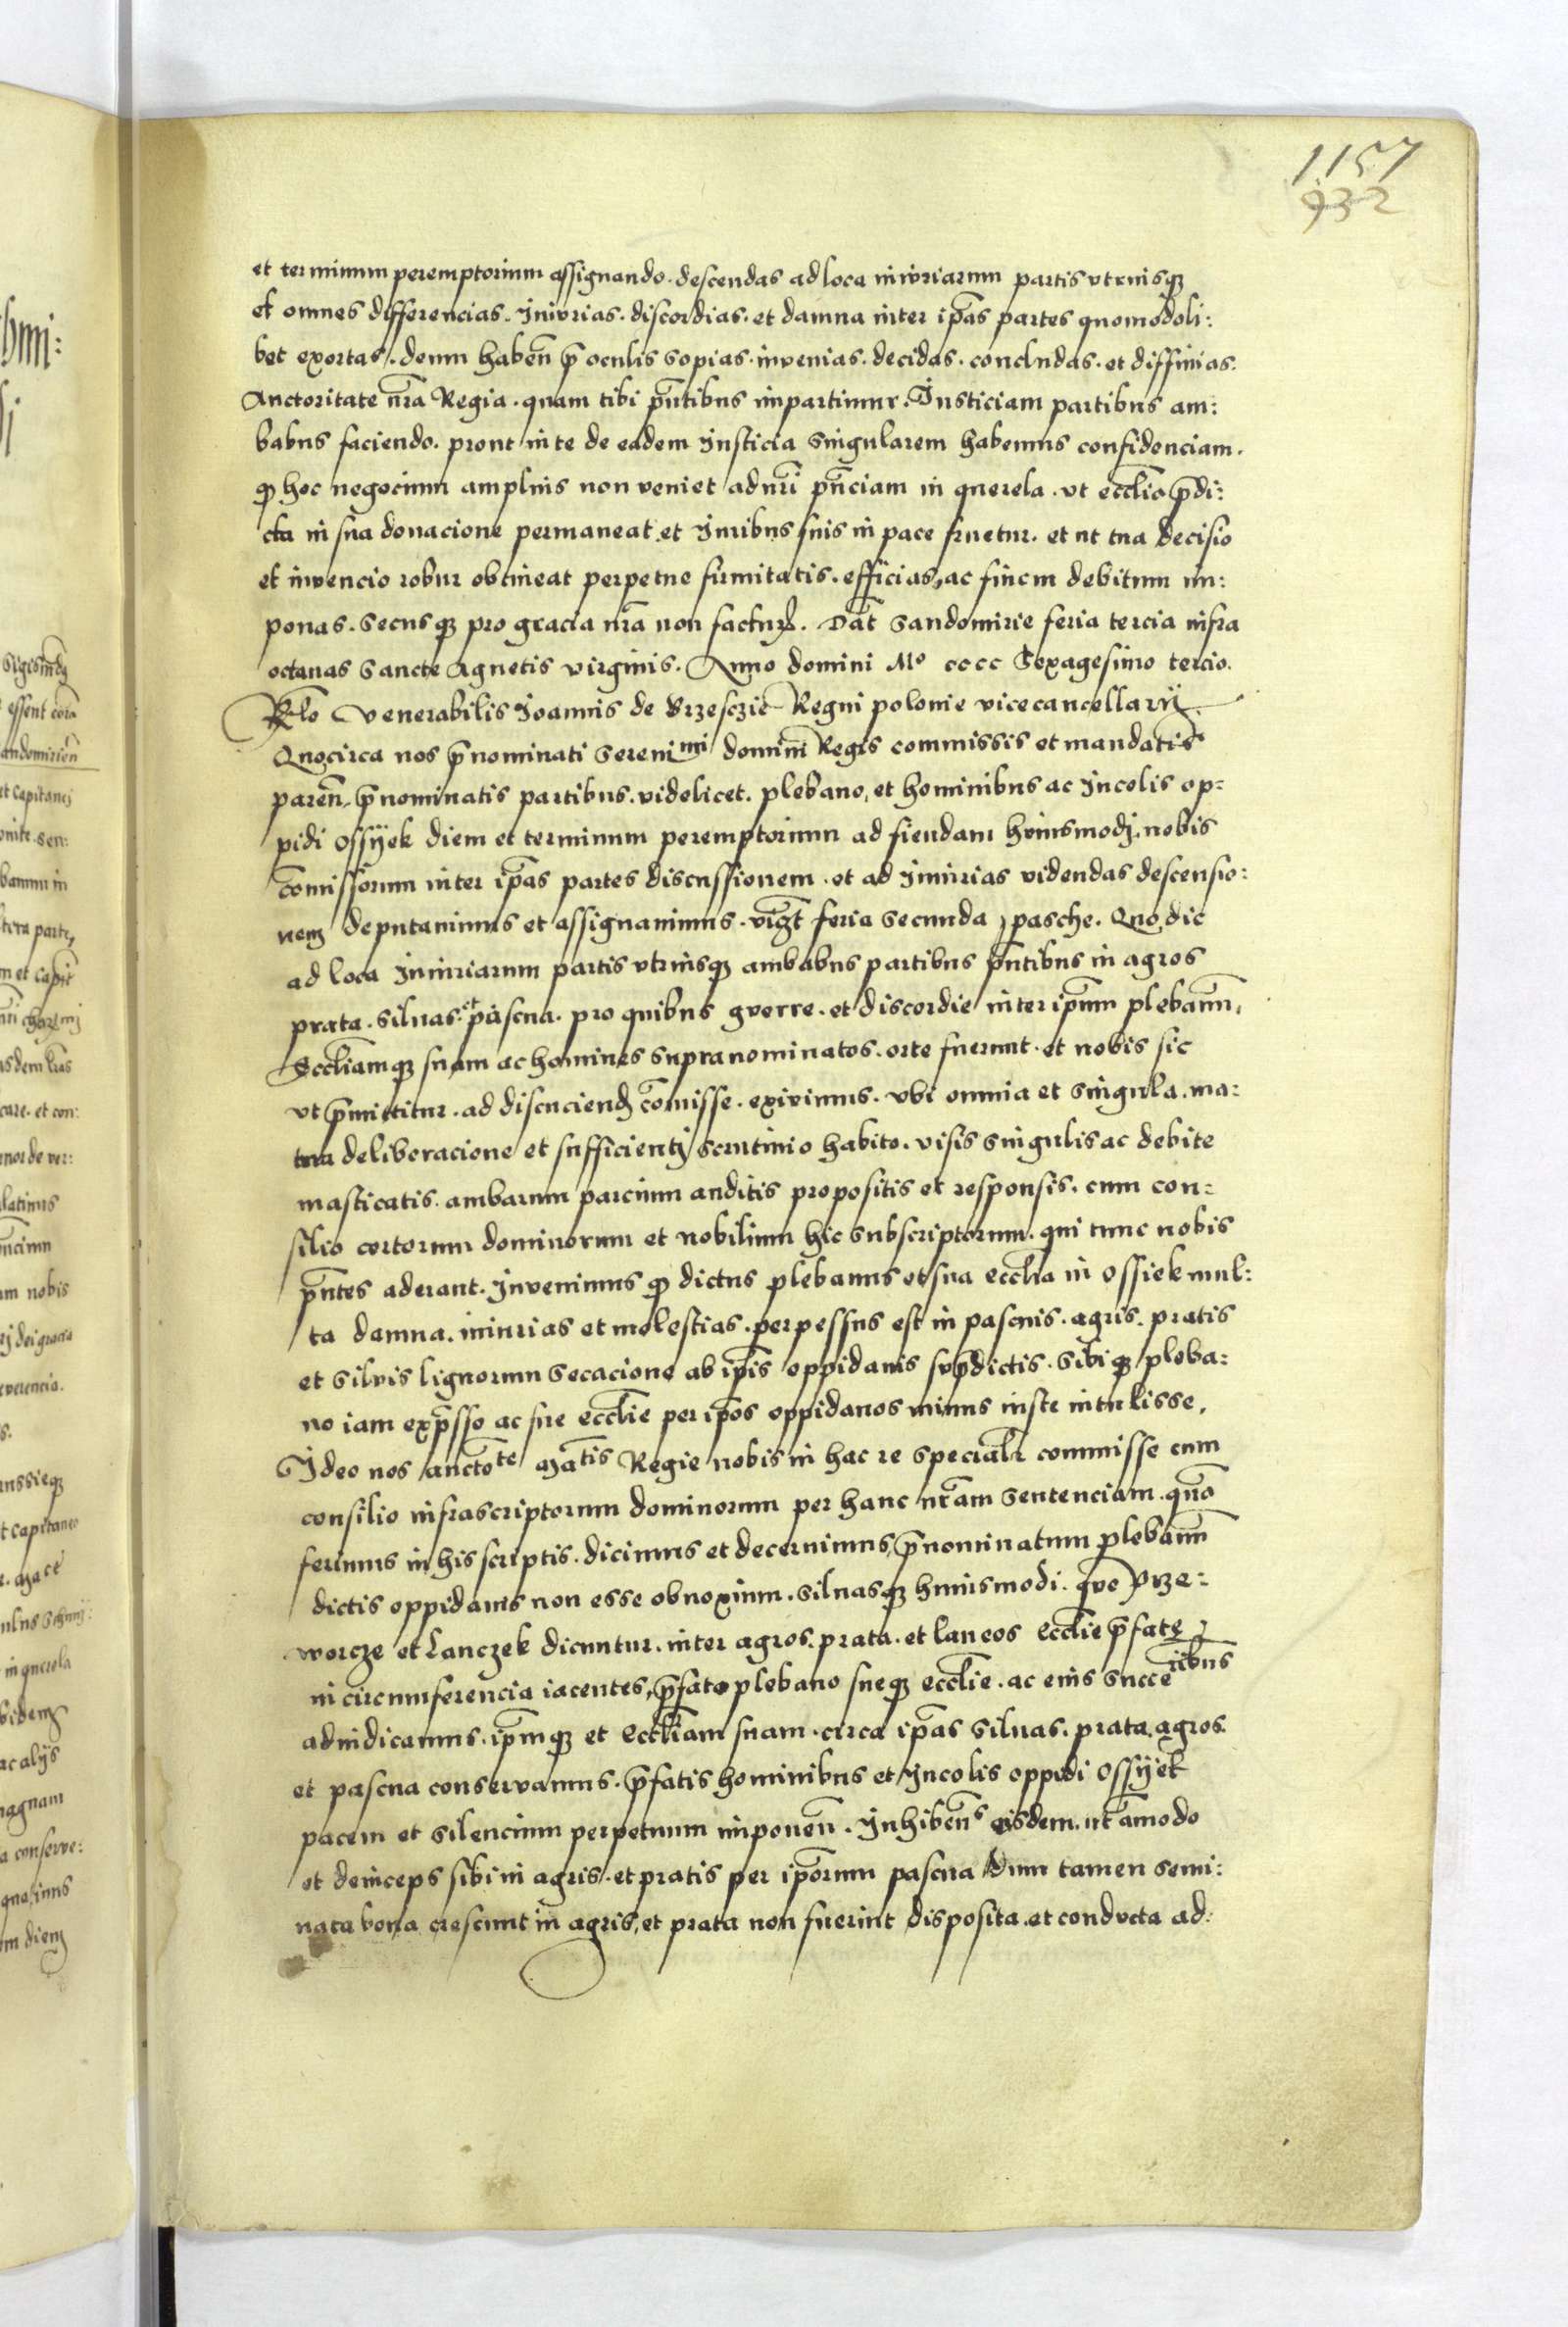 1157
932
et terminum peremptorium assignando. descendas ad loca iniuriarum partis vtriusq3
et omnes differencias. Iniurias. discordias. et damna inter ip̃as partes quomodoli:
bet exortas. deum habeñ p̃ oculis sopias. invenias. decidas. concludas. et diffinias.
Auctoritate nr̃a Regia. quam tibi pñtibus impartimur. Iusticiam partibus am:
babus faciendo. prout in te de eadem Iusticia singularem habemus confidenciam.
q̃ hoc negocium amplius non veniet ad nr̃i pñciam in querela. vt eccl̃ia p̃di:
cta in sua donacione permaneat et Iuribus suis in pace fruetur. et ut tua decisio
et invencio robur obtineat perpetue firmitatis. efficias, ac finem debitum im:
ponas. secusq3 pro gracia nr̃a non factur̃. Dat̃ Sandomirie feria tercia infra
octauas Sancte Agnetis virginis. Anno domini Mo cccc Sexagesimo tercio.
Rel̃o Venerabilis Joannis de Brzesczie Regni polonie vicecancellarij
Quocirca nos p̃nominati Sereni mi dominī Regis commissis et mandatis
pareñ. p̃nominatis partibus. videlicet. plebano, et hominibus ac Incolis op:
pidi Ossÿek diem et terminum peremptorium ad fiendam huiusmodj. nobis
com̃issorum inter ip̃as partes discussionem. et ad Iniurias videndas descensio:
nem deputauimus et assignauimus. viz̃t feria secunda pasche. Quo, die
ad loca Iniuriarum partis vtriusq3 ambabus partibus pñtibus in agros
prata. siluas. et pascua. pro quibus gverre. et discordie inter ip̃um plebanũm,
Eccl̃iamq3 suam ac homines supranominatos. orte fuerunt. et nobis sic
vt p̃mittitur. ad discuciend̃ com̃isse. exivimus. vbi omnia et singula. ma:
tura deliberacione et sufficientj scrutinio habito. visis singulis ac debite
masticatis. ambarum parcium auditis propositis et responsis. cum con:
silio certorum dominorum et nobilium hic subscriptorum. qui tunc nobis
p̃ntes aderant. Invenimus q̃ dictus plebanus et sua eccl̃ia in Ossiek mul:
ta damna. iniurias et molestias. perpessus est in pascuis. agris. pratis
et siluis lignorum secacione ab ip̃is oppidanis sup̃dictis. sibiq3 pleba:
no iam exp̃sso ac sue eccl̃ie per ip̃os oppidanos minus iuste intulisse,
Ideo nos aucto te Ma tis Regie nobis in hac re specialr̃ commisse cum
consilio infrascriptorum dominorum per hanc nr̃am sentenciam. quã
ferimus in his scriptis. dicimus et decernimus, p̃nominatum plebanũm
dictis oppidanis non esse obnoxium. siluasq3 huiusmodi. que Prze:
worcze et Lanczek dicuntur. inter agros. prata. et laneos eccl̃ie p̃fate
in circumferencia iacentes, p̃fato plebano sueq3 eccl̃ie. ac eius succe ribus
adiudicamus. ip̃mq3 et eccl̃iam suam. circa ip̃as siluas. prata, agros
et pascua conservamus. p̃fatis hominibus et Incolis oppidi Ossÿek
pacem et silencium perpetuum imponeñ. Inhibeñs eisdem. ut ãmodo
et deinceps sibi in agris. et pratis per ip̃orum pascua dum tamen semi:
nata bona crescunt in agris, et prata non fuerint disposita. et conducta ad: